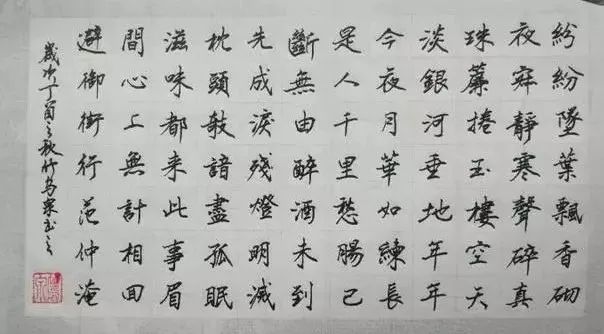 紛紛墜葉飄香砌
夜寂靜寒聲碎真
珠簾捲玉樓空天
淡銀河垂地年年
今夜月華如練長
是人千里愁腸已
斷無由醉酒未到
先成淚殘燈明滅
枕頭敧諳盡孤眠
滋味都来此事眉
間心上無計相回
避御街行范仲淹
歲次丁酉之秋竹